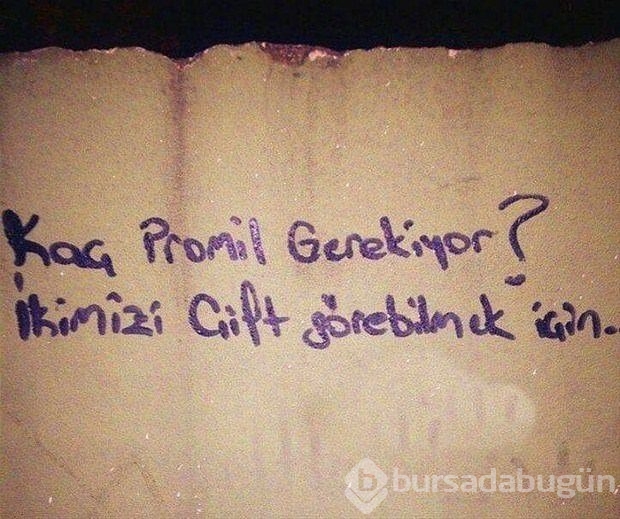 Kaç Promil Gerekiyor?
İkimizi Çift görebilmek için..
bursadabugün.